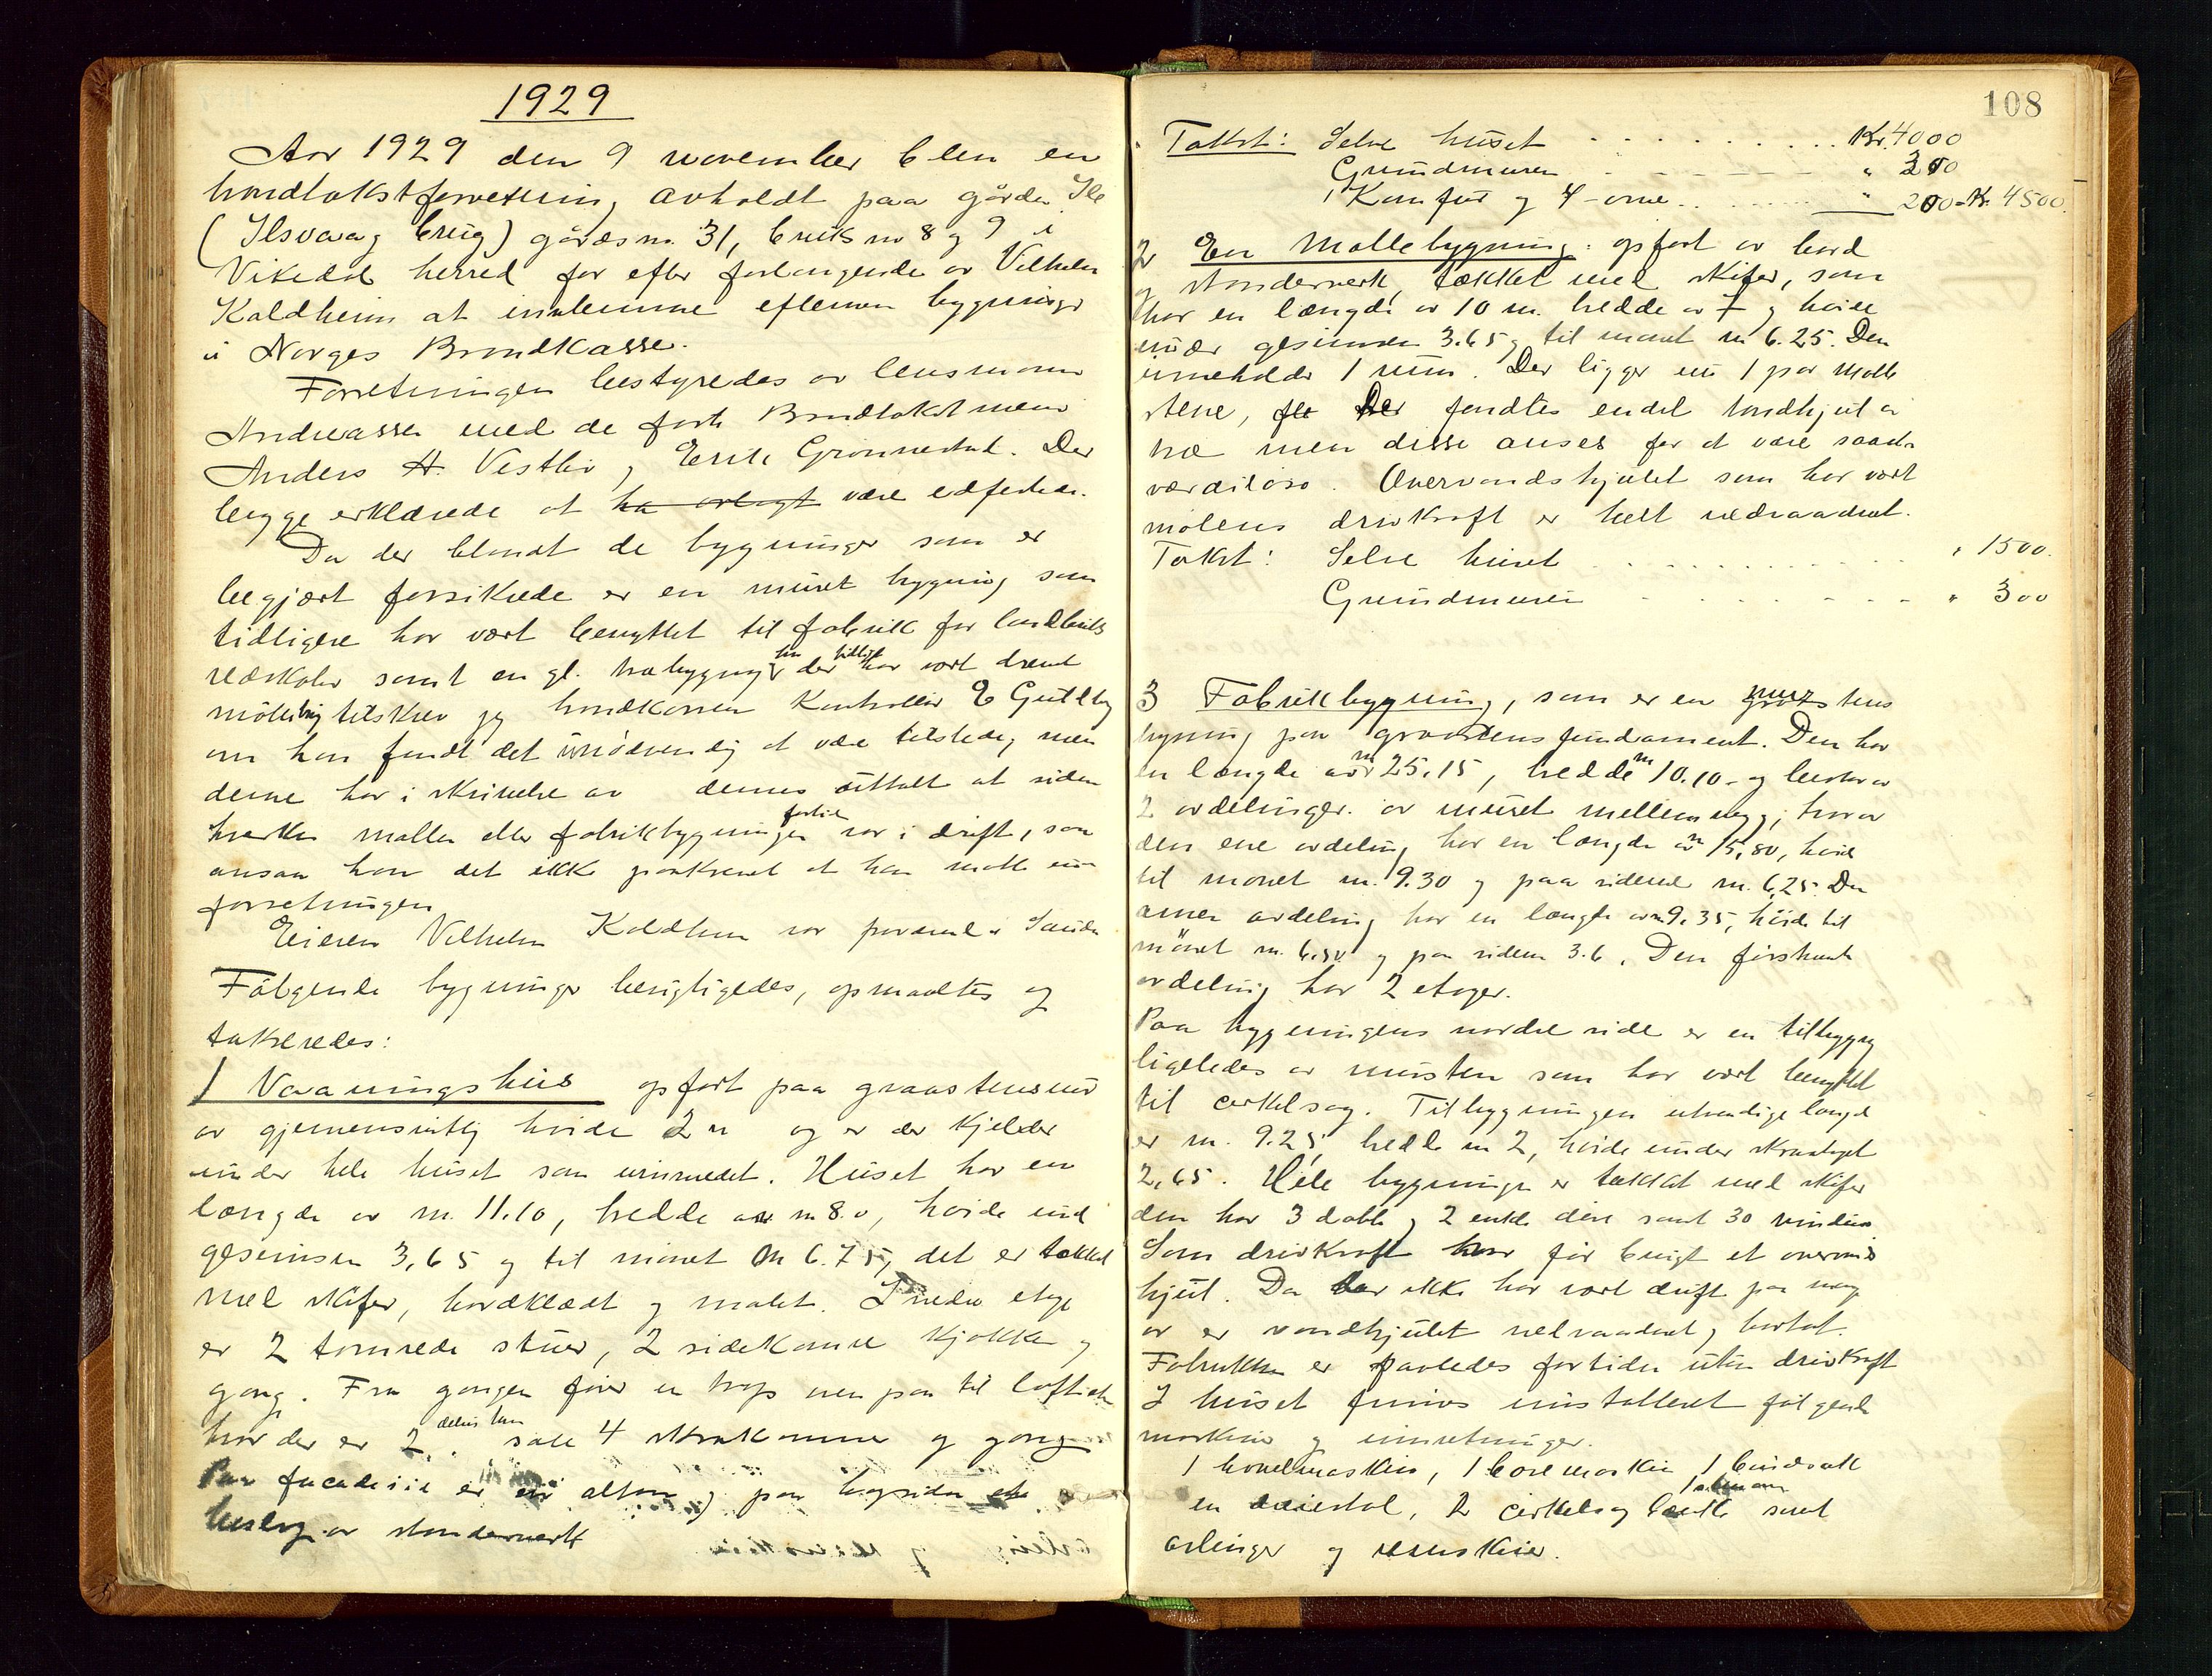 1929
Aar 1929 den 9 november blev en
brandtakstforretning avholdt paa gården Ile
(Ilsvaag brug) gårdsnr. 31, bruks nr 8 og 9 i
Vikedal herred for efter forlangende av Vilhelm
Koldheim at indlemme efternevnte bygninger
i Norges Brandkasse.
Forretningen bestyredes av lensmann
Andreassen med de faste Brandtakstmenn
Anders H. Vestbø og Erik Grønnestad. De
begge erklærede at ha avlagt være edfestede.
Da der blandt de bygninger som er
begjært forsikrede er en muret bygning som
tidligere har vært benyttet til fabrik for landbruks
redskaber samt en gl. træbygning hvor der tidligere har vært drevet
møllebrug tilskrev jeg brandkassens Kontrollør E Gullbg
om han fandt det unødvendig at være tilstede, men
denne har i skrivelse av dennes uttalt at siden
hverken møllen eller fabrikbygningen for tiden var i drift, saa
ansaa han det ikke paakrevet at han møtte ved
forretningen
Eieren Vilhelm Koldheim var fraværende i Sauda
Følgende bygninger besigtigedes, opmaaltes og
takseredes:
1 Vaaningshus opført paa graastensmur
av gjennemsnitlig høide 2 m og er der kjelder
under hele huset som uinnredet. Huset har en
længde av m. 11.10, bredde av m 8.0, høide und
gesimsen 3,65 og til mønet m 6.75, det er tækket
med skifer, bordklædt og malet. I nedre etage
er 2 tømrede stuer, 2 sidekamre kjøkken og
gang. Fra gangen fører en trap oven paa til loftsetg
hvor der er 2 sale 4 skraakamre og gang
Paa facadesiden er en altan og paa bagsiden et
bislag av standerverk
108
Takst: Selve huset . . . . . . . . . . Kr. 4000
Grundmuren . - - - - - " 300
1 Komfur og 4 ovne . . . . . . " 200 - Kr. 4500.
2 En Møllebygning: opført av bord
og standerverk, tækket med skifer, som
har en længde av 10 m. bredde av 7 og høide
under gesimsen 3.65 og til mønet m 6.25. Den
inneholder 1 rum. Der ligger nu 1 par mølle
stene, Der fandtes endel tandhjul i
træ men disse anses for at være saadan
værdiløse. Overvandshjulet som har vært
mølens drivkraft er helt nedraadnet.
Takst: Selve huset . . . . . . . . . . " 1500.
Grundmuren - - - - - - - " 300
3 Fabrikbygning, som er en murstens
bygning paa graastensfundament. Den har
en længde av m 25.15, bredde m 10.10 - og bestaar av
2 avdelinger av muret mellemvegg, hvorav
den ene avdeling har en længde av m 15,80, høide
til mønet m. 9.30 og paa sidene m. 6,25. Den
annen avdeling har en længde av m 9.35, høide til
mønet m. 6.50 og paa sidene 3.6. Den førstnevnte
avdeling har 2 etager.
Paa bygningens nordre side er en tilbygg
ligeledes av mursten som har vært benyttet
til cirkelsag. Tilbygningen utvendige længde
er m. 9.25, bredde m 2, høide under skraataget
2,65. Hele bygningen er tækket med skifer
den har 3 doble og 2 enkle døre samt 30 vinduer
Som drivkraft har før brugt et overvands
hjul. Da der ikke har vært drift paa mange
aar er vandhjulet nedraadnet og bortat.
Fabrikken er saaledes for tiden uten drivkraft
I huset finnes installeret følgende
maskiner og innretninger.
1 høvelmaskin, 1 boremaskin 1 baandsag
en dreiestol, 2 cirkelsag bænke samt
avlinger og remskiver.